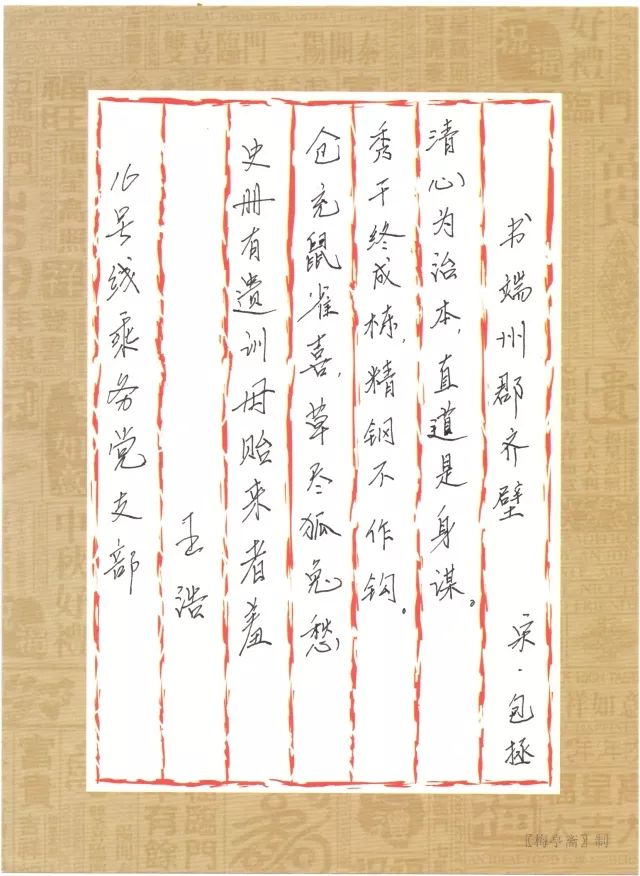 书端州郡齐壁
宋·包拯
清心为治本,直道是身谋。
秀干终成栋,精钢不作钩。
仓充鼠雀喜,草尽狐兔愁
史册有遗训毋贻来者羞
王浩
16号线乘务党支部
〖梅亭斋〗制